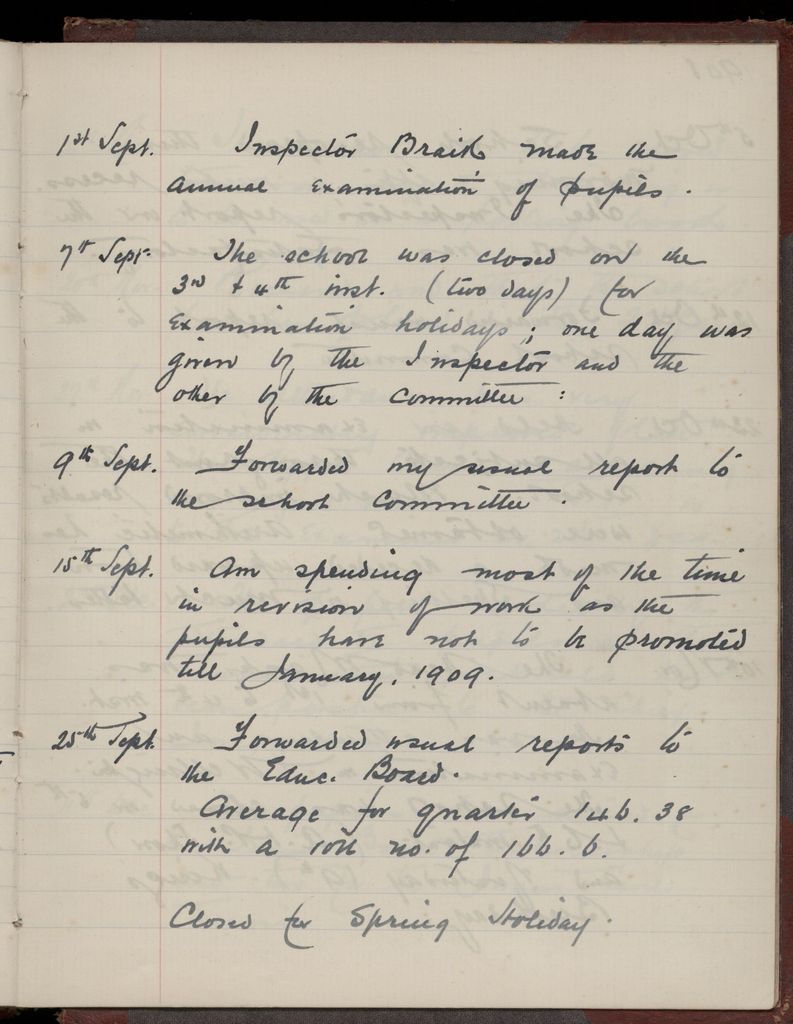 1st Sept. Inspector Braik made the
annual examination of pupils.
7th Sept. The school was closed on the
3rd & 4th inst. (two days) for
examination holidays; one day was
given by the Inspector and the
other by the Committee:
9th Sept. Forwarded my usual report to
the school Committee.
15th Sept. Am spending most of the time
in revision of work as the
pupils have not to be promoted
till January, 1909.
25th Sept. Forwarded usual reports to
the Educ. Board.
Average for quarter 146.38
with a roll no. of 166.6.
Closed for Spring Holiday.